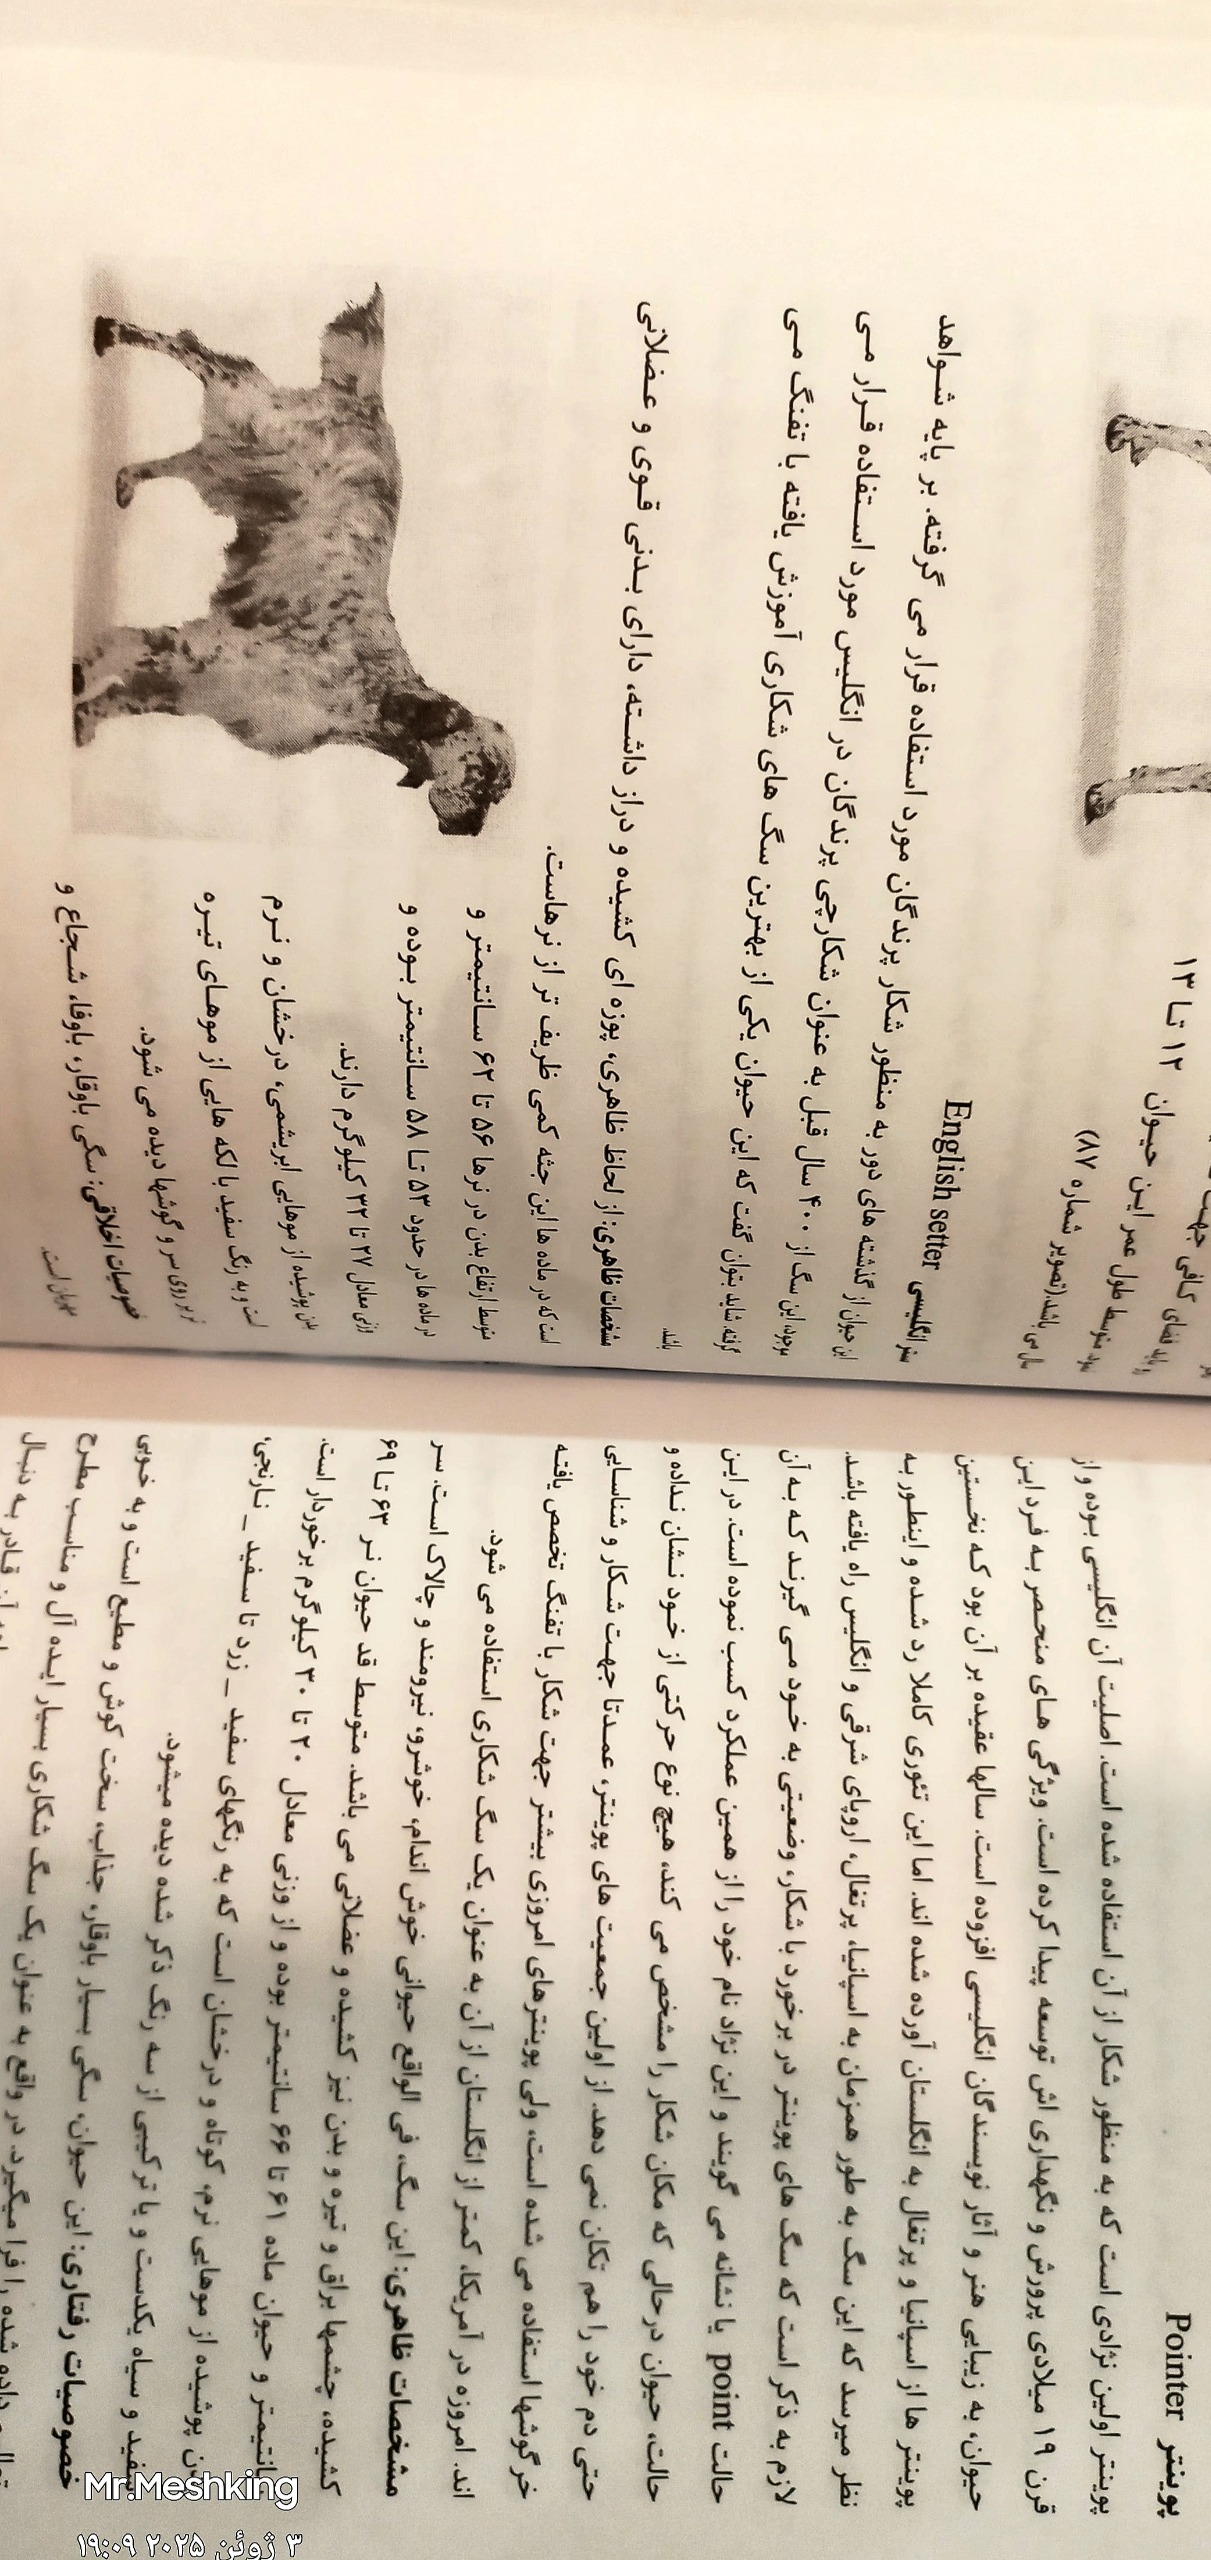 پوینتر Pointer
پوینتر اولین نژادی است که به منظور شکار از آن استفاده شده است. اصلیت آن انگلیسی بوده و از
قرن ۱۹ میلادی پرورش و نگهداری اش توسعه پیدا کرده است. ویژگی های منحصر به فرد این
حیوان، به زیبایی هنر و آثار نویسندگان انگلیسی افزوده است. سالها عقیده بر آن بود که نخستین
پوینتر ها از اسپانیا و پرتغال به انگلستان آورده شده اند. اما این تئوری کاملا رد شده و اینطور به
نظر میرسد که این سگ به طور همزمان به اسپانیا، پرتغال، اروپای شرقی و انگلیس راه یافته باشد.
لازم به ذکر است که سگ های پوینتر در برخورد با شکار، وضعیتی به خود می گیرند که به آن
حالت point یا نشانه می گویند و این نژاد نام خود را از همین عملکرد کسب نموده است. در این
حالت، حیوان درحالی که مکان شکار را مشخص می کند، هیچ نوع حرکتی از خود نشان نداده و
حتی دم خود را هم تکان نمی دهد. از اولین جمعیت های پوینتر، عمدتا جهت شکار و شناسایی
خرگوشها استفاده می شده است، ولی پوینترهای امروزی بیشتر جهت شکار با تفنگ تخصص یافته
اند. امروزه در آمریکا، کمتر از انگلستان از آن به عنوان یک سگ شکاری استفاده می شود.
مشخصات ظاهری: این سگ، فی الواقع حیوانی خوش اندام، خوشرو، نیرومند و چالاک است. سر
کشیده، چشمها براق و تیره و بدن نیز کشیده و عضلانی می باشد. متوسط قد حیوان نر ۶۳ تا ۶۹
سانتیمتر و حیوان ماده ۶۱ تا ۶۶ سانتیمتر بوده و از وزنی معادل ۲۰ تا ۳۰ کیلوگرم برخوردار است.
بدن پوشیده از موهایی نرم، کوتاه و درخشان است که به رنگهای سفید _ زرد تا سفید _ نارنجی،
سفید و سیاه یکدست و یا ترکیبی از سه رنگ ذکر شده دیده میشود.
خصوصیات رفتاری: این حیوان، سگی بسیار باوقار، جذاب، سخت کوش و مطیع است و به خوبی
را فرا میگیرد. در واقع به عنوان یک سگ شکاری بسیار ایده آل و مناسب مطرح
قادر به دنبال
کافی جهت
متوسط طول عمر این حیوان ۱۲ تا ۱۳
سال می باشد.(تصویر شماره ۸۷)
ستر انگلیسی English setter
این حیوان از گذشته های دور به منظور شکار پرندگان مورد استفاده قرار می گرفته. بر پایه شواهد
موجود، این سگ از ۴۰۰ سال قبل به عنوان شکارچی پرندگان در انگلیس مورد استفاده قرار می
گرفته. شاید بتوان گفت که این حیوان یکی از بهترین سگ های شکاری آموزش یافته با تفنگ می
باشد.
مشخصات ظاهری: از لحاظ ظاهری، پوزه ای کشیده و دراز داشته، دارای بدنی قوی و عضلانی
است که در ماده ها این جثه کمی ظریف تر از نرهاست.
متوسط ارتفاع بدن در نرها ۵۶ تا ۶۲ سانتیمتر و
در ماده ها در حدود ۵۳ تا ۵۸ سانتیمتر بوده و
وزنی معادل ۲۷ تا ۳۲ کیلوگرم دارند.
بدن پوشیده از موهایی ابریشمی، درخشان و نرم
است و به رنگ سفید با لکه هایی از موهای تیره
بر روی سر و گوشها دیده می شود.
خصوصیات اخلاقی: سگی باوقار، باوفا، شجاع و
مهربان است.
Mr.Meshking
۳ ژوئن ۲۰۲۵ ۱۹:۰۹